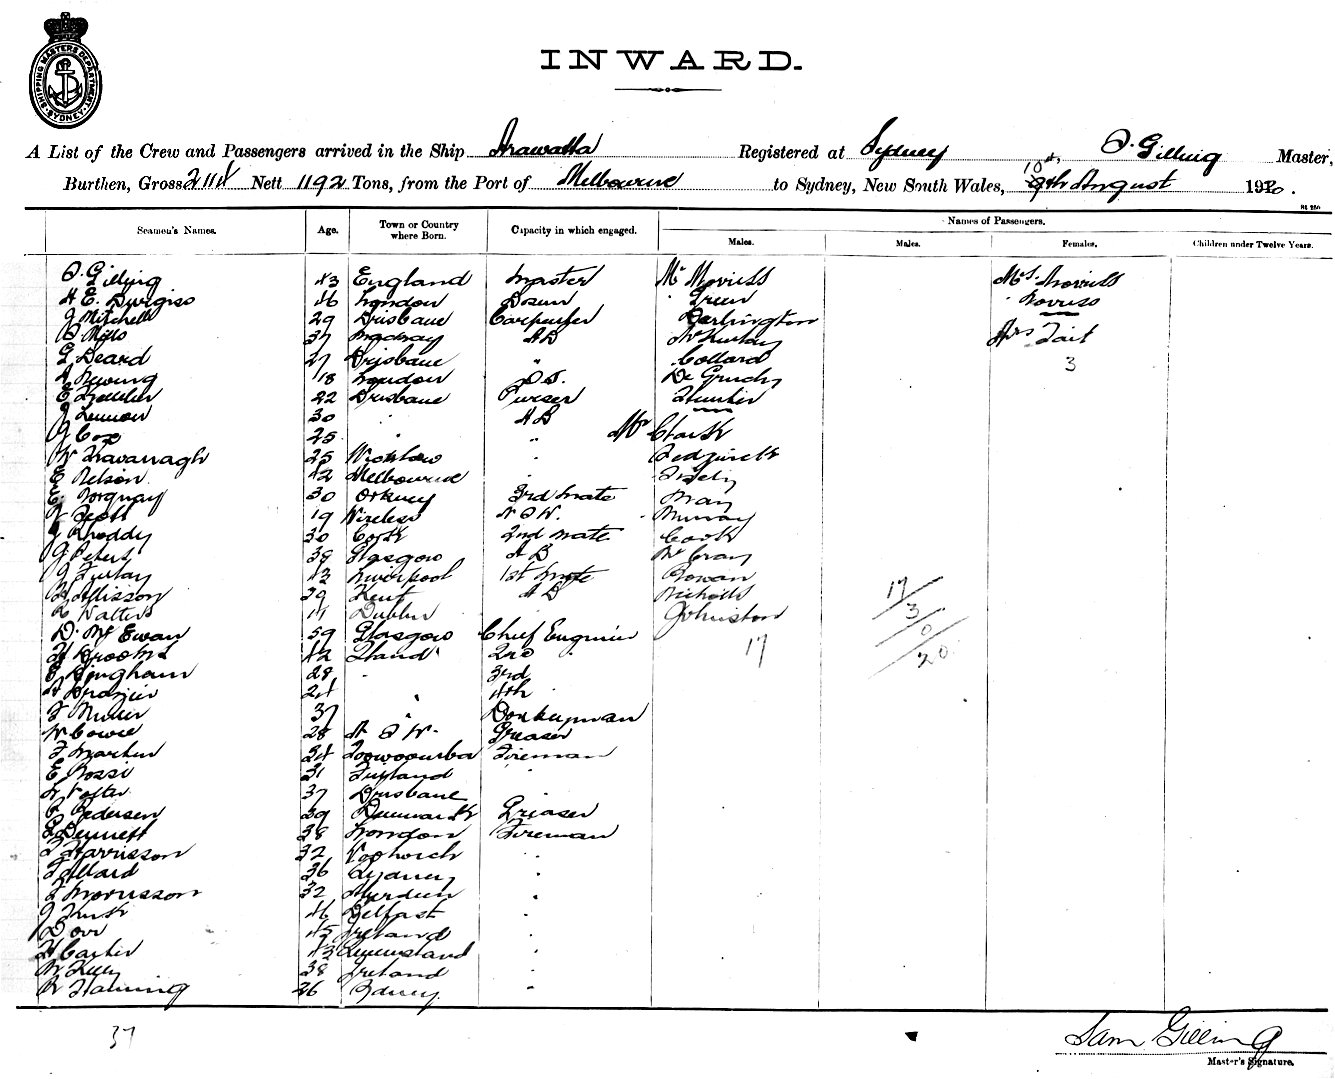 SHIPPING MASTERS DEPARTMENT SYDNEY
INWARD.
A List of the Crew and Passengers arrived in the Ship Arawatta Registered at Sydney S. Gilling Master,
Burthen, Gross 2114 Nett 1192 Tons, from the Port of Melbourne to Sydney, New South Wales, 10th August 1920.
Seamen's Names. Age. Town or Country where Born. Capacity in which engaged. Names of Passengers.
Males. Males. Females. Children under Twelve Years.
S. Gilling 43 England Master Mr Morriss Mrs Morriss
H E 46 London Bosun Green " Norriss
J Mitchell 29 Brisbane Carpenter Darlington
S. Mills 37 Mackay AB McKurtay Mrs Tait
G Beard 27 Brisbane " Collard 3
18 London O.S. De Gruchy
E 22 Brisbane Purser Hunter
J Lennon 30 " AB
J Cox 25 " " Mr Clark
W Kavanagh 25 Wicklow "
E Nelson 42 Melbourne "
E. Torquay 30 Orkney 3rd Mate May
J Scott 19 Wireless N.S.W. Murray
J Roddy 30 Cork 2nd Mate Cook
J Peters 38 Glasgow AB McCray
J Furlay 43 Liverpool 1st Mate Rowan
Allison 39 Kent AB Nicholls
R Walters 41 Dublin Johnston
D. McEwan 59 Glasgow Chief Engineer 17
H 42 2nd "
Bingham 28 " 3rd
H Brazier 24 " 4th
37 " Donkeyman
W Cowie 28 N S W. Greaser
F Martin 24 Toowoomba Fireman
E Rossi 31 "
37 Brisbane "
P Pedersen 39 Denmark Greaser
Bennett 38 London Fireman
Harrisson 32 "
36 Sydney "
J Morrisson 32 Aberdeen "
J 46 Belfast "
Dorr 45 Ireland "
H Carter 43 Queensland "
W Kelly 38 Ireland "
R Fleming 26 Sydney. "
17
3
0
20
37
Sam Gilling
Master's Signature.